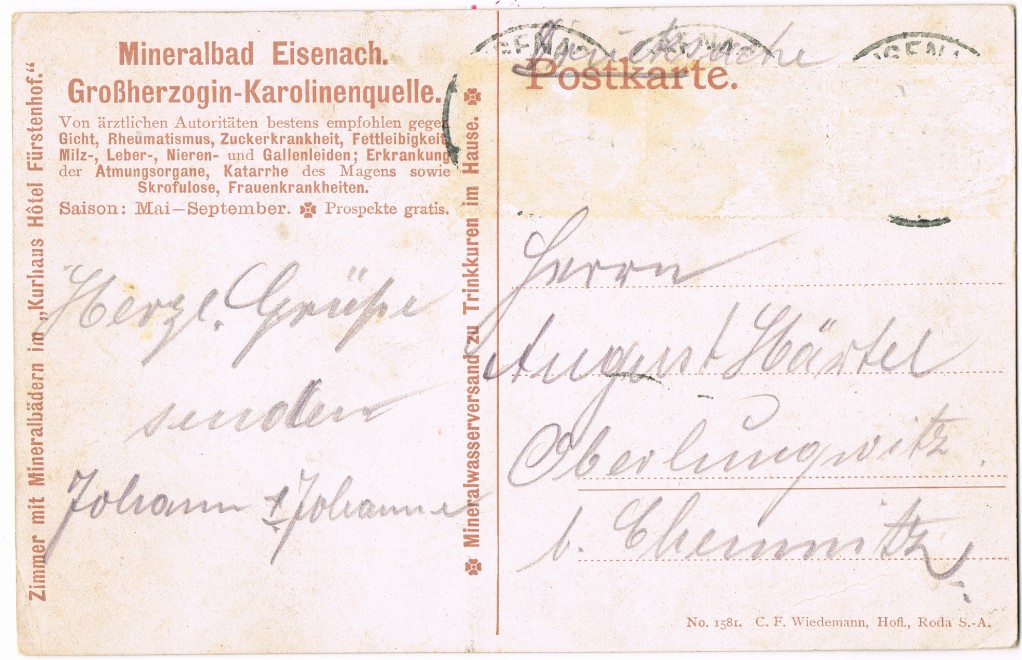 Mineralbad Eisenach.
Großherzogin-Karolinenquelle.
Von ärztlichen Autoritäten bestens empfohlen gegen
Gicht, Rheumatismus, Zuckerkrankheit, Fettleibigkeit
Milz-, Leber-, Nieren- und Gallenleiden; Erkrankung
der Atmungsorgane, Katarrhe des Magens sowie
Skrofulose, Frauenkrankheiten.
Saison: Mai–September. Prospekte gratis.
Zimmer mit Mineralbädern im „Kurhaus Hôtel Fürstenhof.“
Herzl. Grüße
senden
Johann + Johanne
Mineralwasserversand zu Trinkkuren im Hause.
Postkarte.
Herrn
August Härtel
Oberlungwitz
b. Chemnitz
No. 1581. C. F. Wiedemann, Hofl., Roda S.-A.